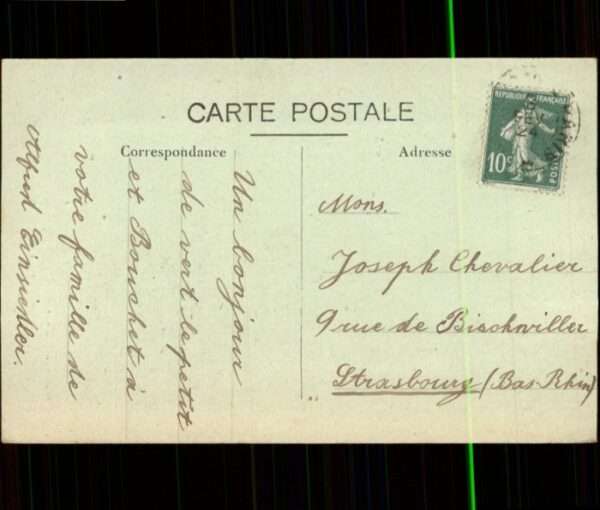 CARTE POSTALE
Correspondance
Adresse
RÉPUBLIQUE FRANÇAISE
10c
POSTES
Un bonjour
de vert le petit
et Bouchet à
votre famille de
Alfred Einsiedler.
Mons.
Joseph Chevalier
9 rue de Bischwiller
Strasbourg (Bas-Rhin)